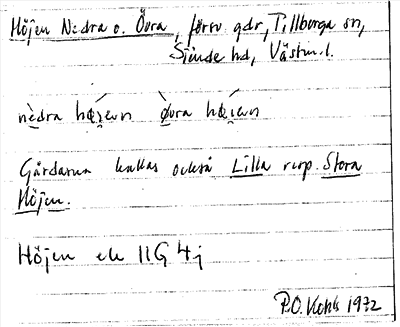 Höjen Nedra o. Övra, försv. gdr, Tillberga sn,
Siende hd, Västm.l.
nèdra hǿi̯ en òvra hǿi̯ en
Gårdarna kallas också Lilla resp. Stora
Höjen.
Höjen ek 11G 4j
P.O. 1972